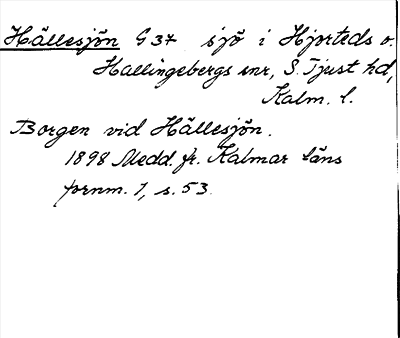 Hällesjön G 37 sjö i Hjorteds o.
Hallingebergs snr, S. Tjust hd,
Kalm. l.
Borgen vid Hällesjön.
1898 Medd. fr. Kalmar läns
fornm. 1, s. 53